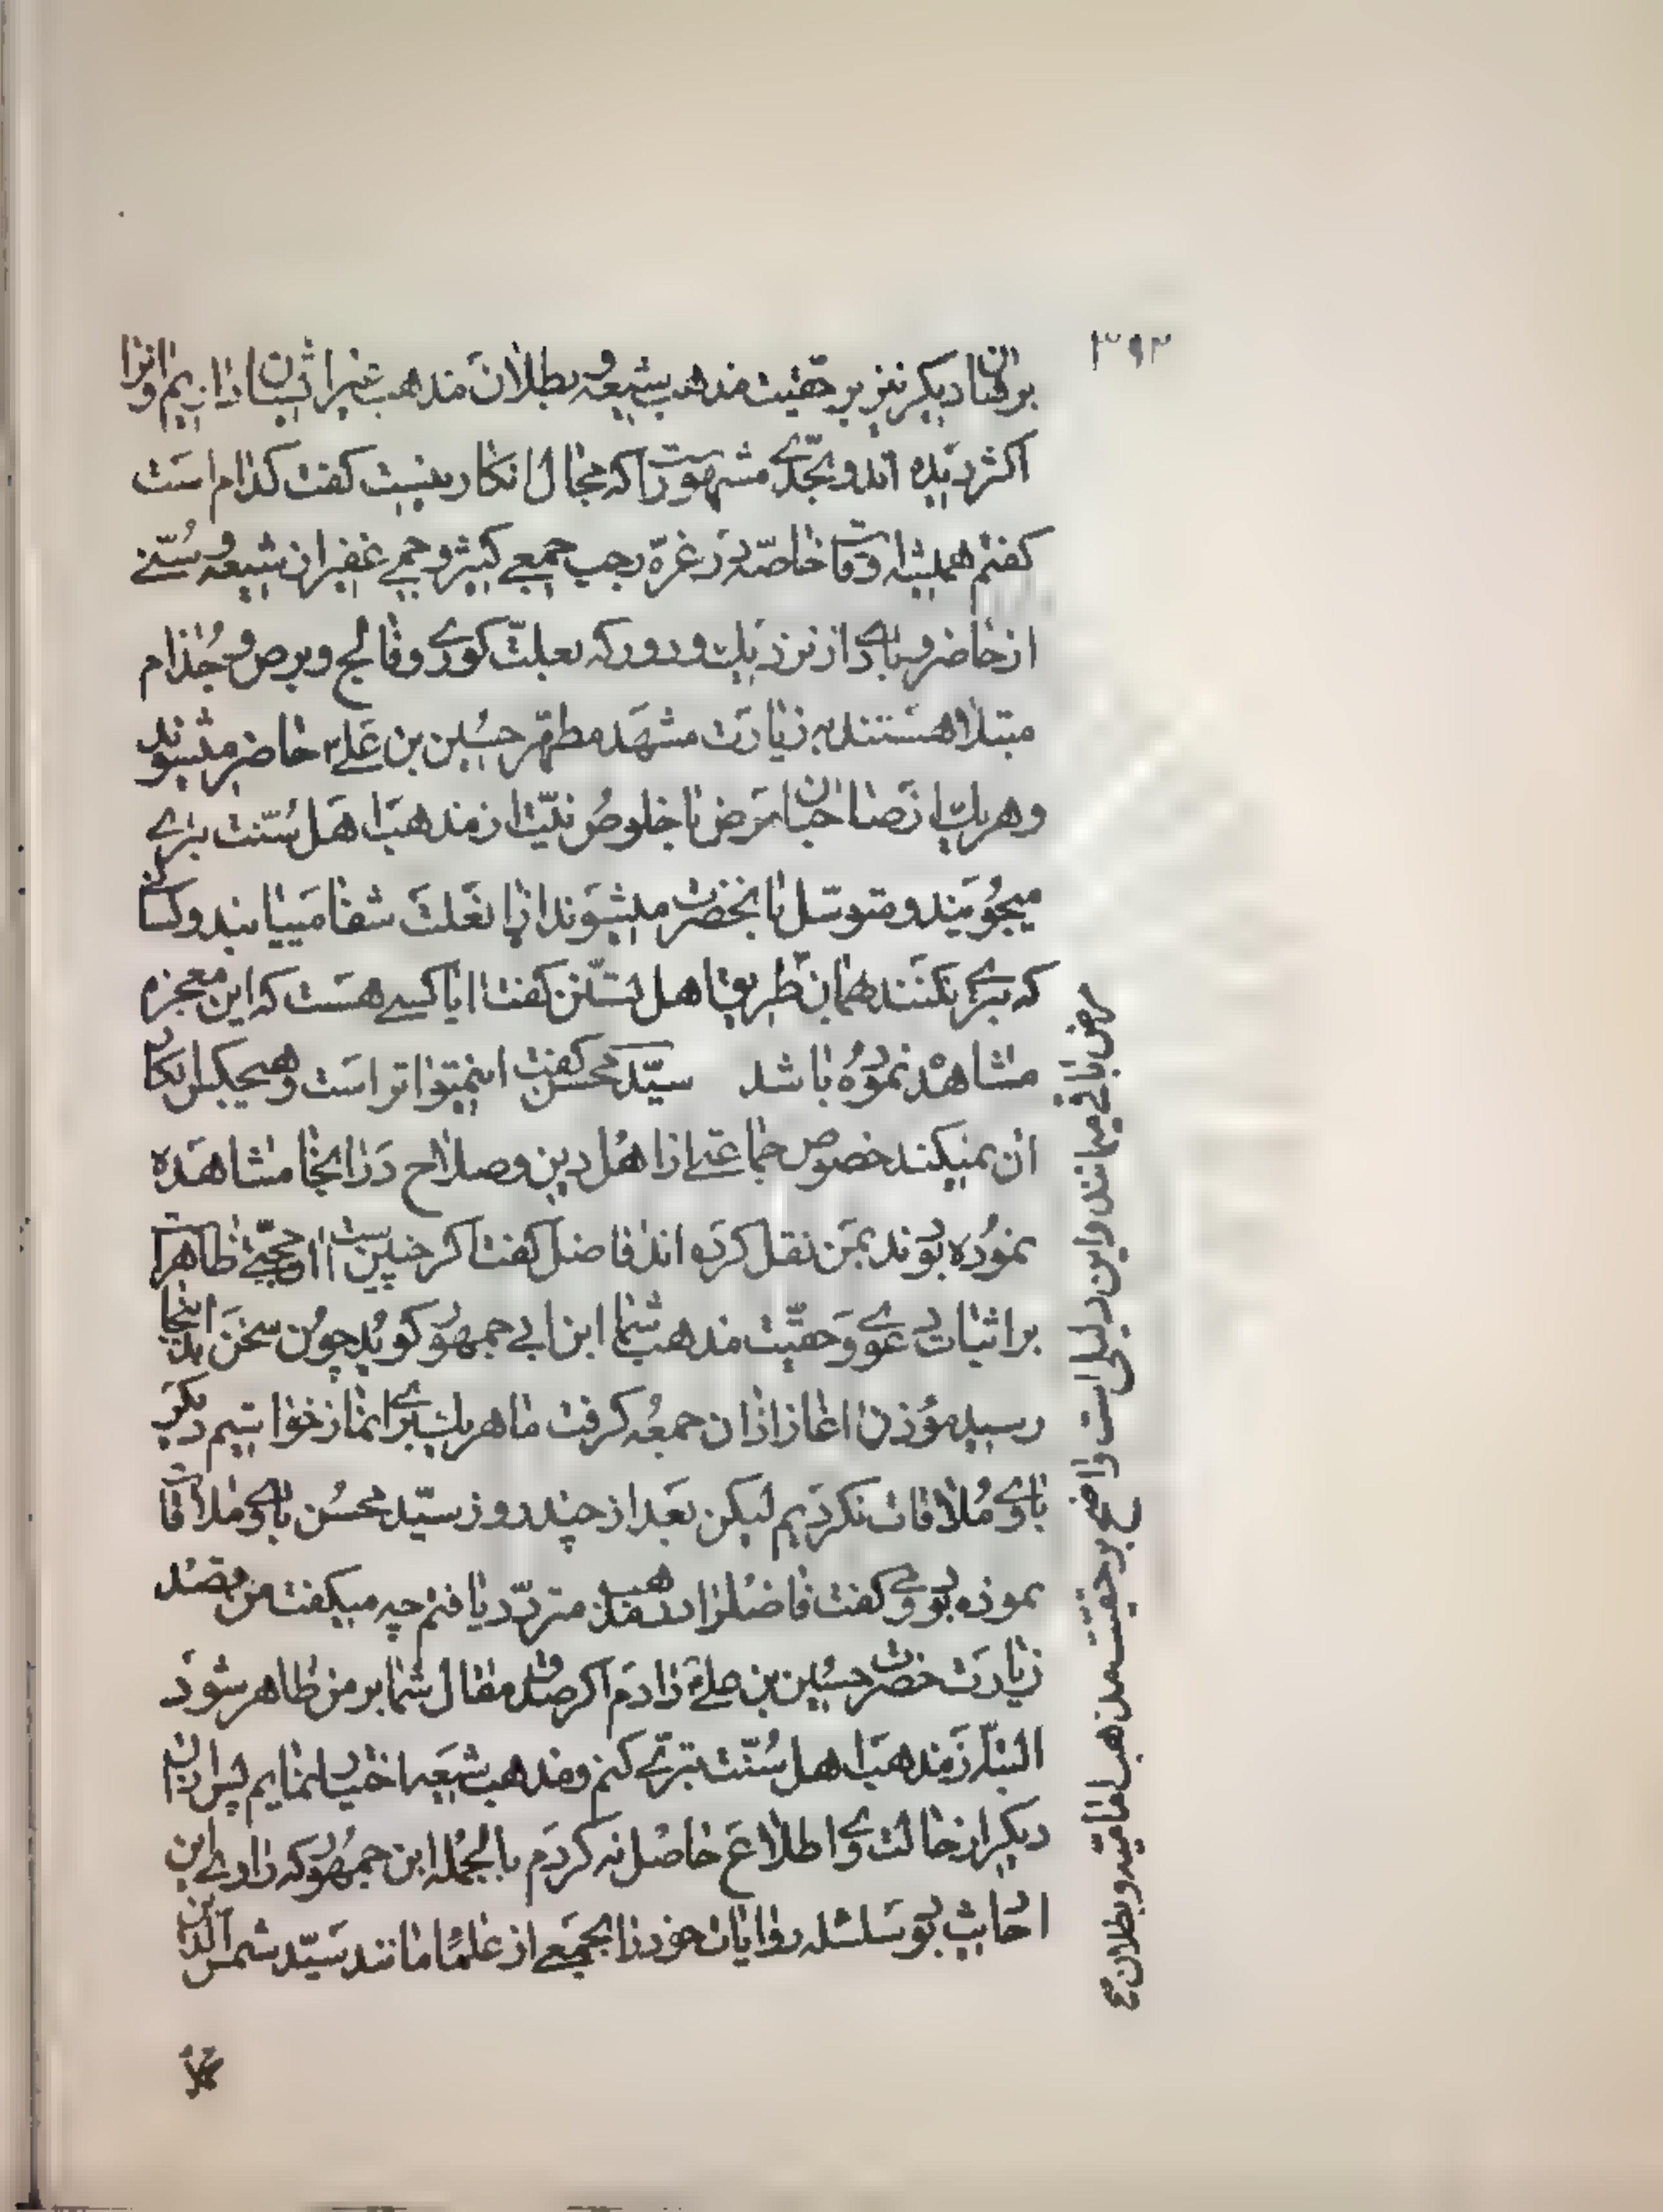 ۳۹۳
برهان دیگر نیز بر حقیت مذهب شیعه و بطلان مذهب غیر ایشان داریم و انرا
اکثر دیده اند و بحدّی مشهور است که مجال انکار نیست گفت کدام است
گفتم همیشه اوقات خاصّه در غرّه رجب جمعی کثیر و جمی غفیر از شیعه و سُنّی
از حاضر و بادی از نزدیک و دور که بعلّت کوری و فالج و برص و جُذام
مبتلا هستند به زیارت مشهد مطهّر حسین بن علی حاضر میشوند
و هریک از صاحبان مرض با خلوص نیّت از مذهب اهل سُنّت تبری
میجویند و متوسّل بانحضرت میشوند از ان علت شفا مییابند و کسا
که تبری نکنند همان طریق اهل تسنّن گفت ایا کسی هست که این معجزه
مشاهده نموده باشد سیّد محسن گفت این متواتر است و هیچکس انکار
ان نمیکند خصوص جماعتی از اهل دین و صلاح در انجا مشاهده
نموده بودند بمن نقل کرده اند فاضل گفت اگر چنین است حجّتی ظاهر
بر اثبات دعوی و حقیّت مذهب شما ابن ابی جمهور گوید چون سخن بدینجا
رسید مؤذن اغاز اذان جمعه گرفت ما هریک برای نماز خواستیم دیگر
باوی مُلاقات نکردیم لیکن بعد از چند روز سیّد محسُن باوی ملاقا
نموده بود وی گفت فاضل را در مذهب متردّد یافتم چه میگفت من قصد
زیارت حضرت حسین بن علی دارم اگر صدق مقال شما بر من ظاهر شود
البتّه از مذهب اهل سُنّت تبرّی کنم و مذهب شیعه اختیار نمایم پس از ان
دیگر از حالت وی اطلاع حاصل نه کردم بالجُمله ابن جمهور که راوی این
احادیث بود سلسله روایات خود را بجمعی از علما مانند سیّد شمس الدین
مرض باقی میمانند و این دلیلی است واضح بر حقیّت مذهب امامیّه و بطلان